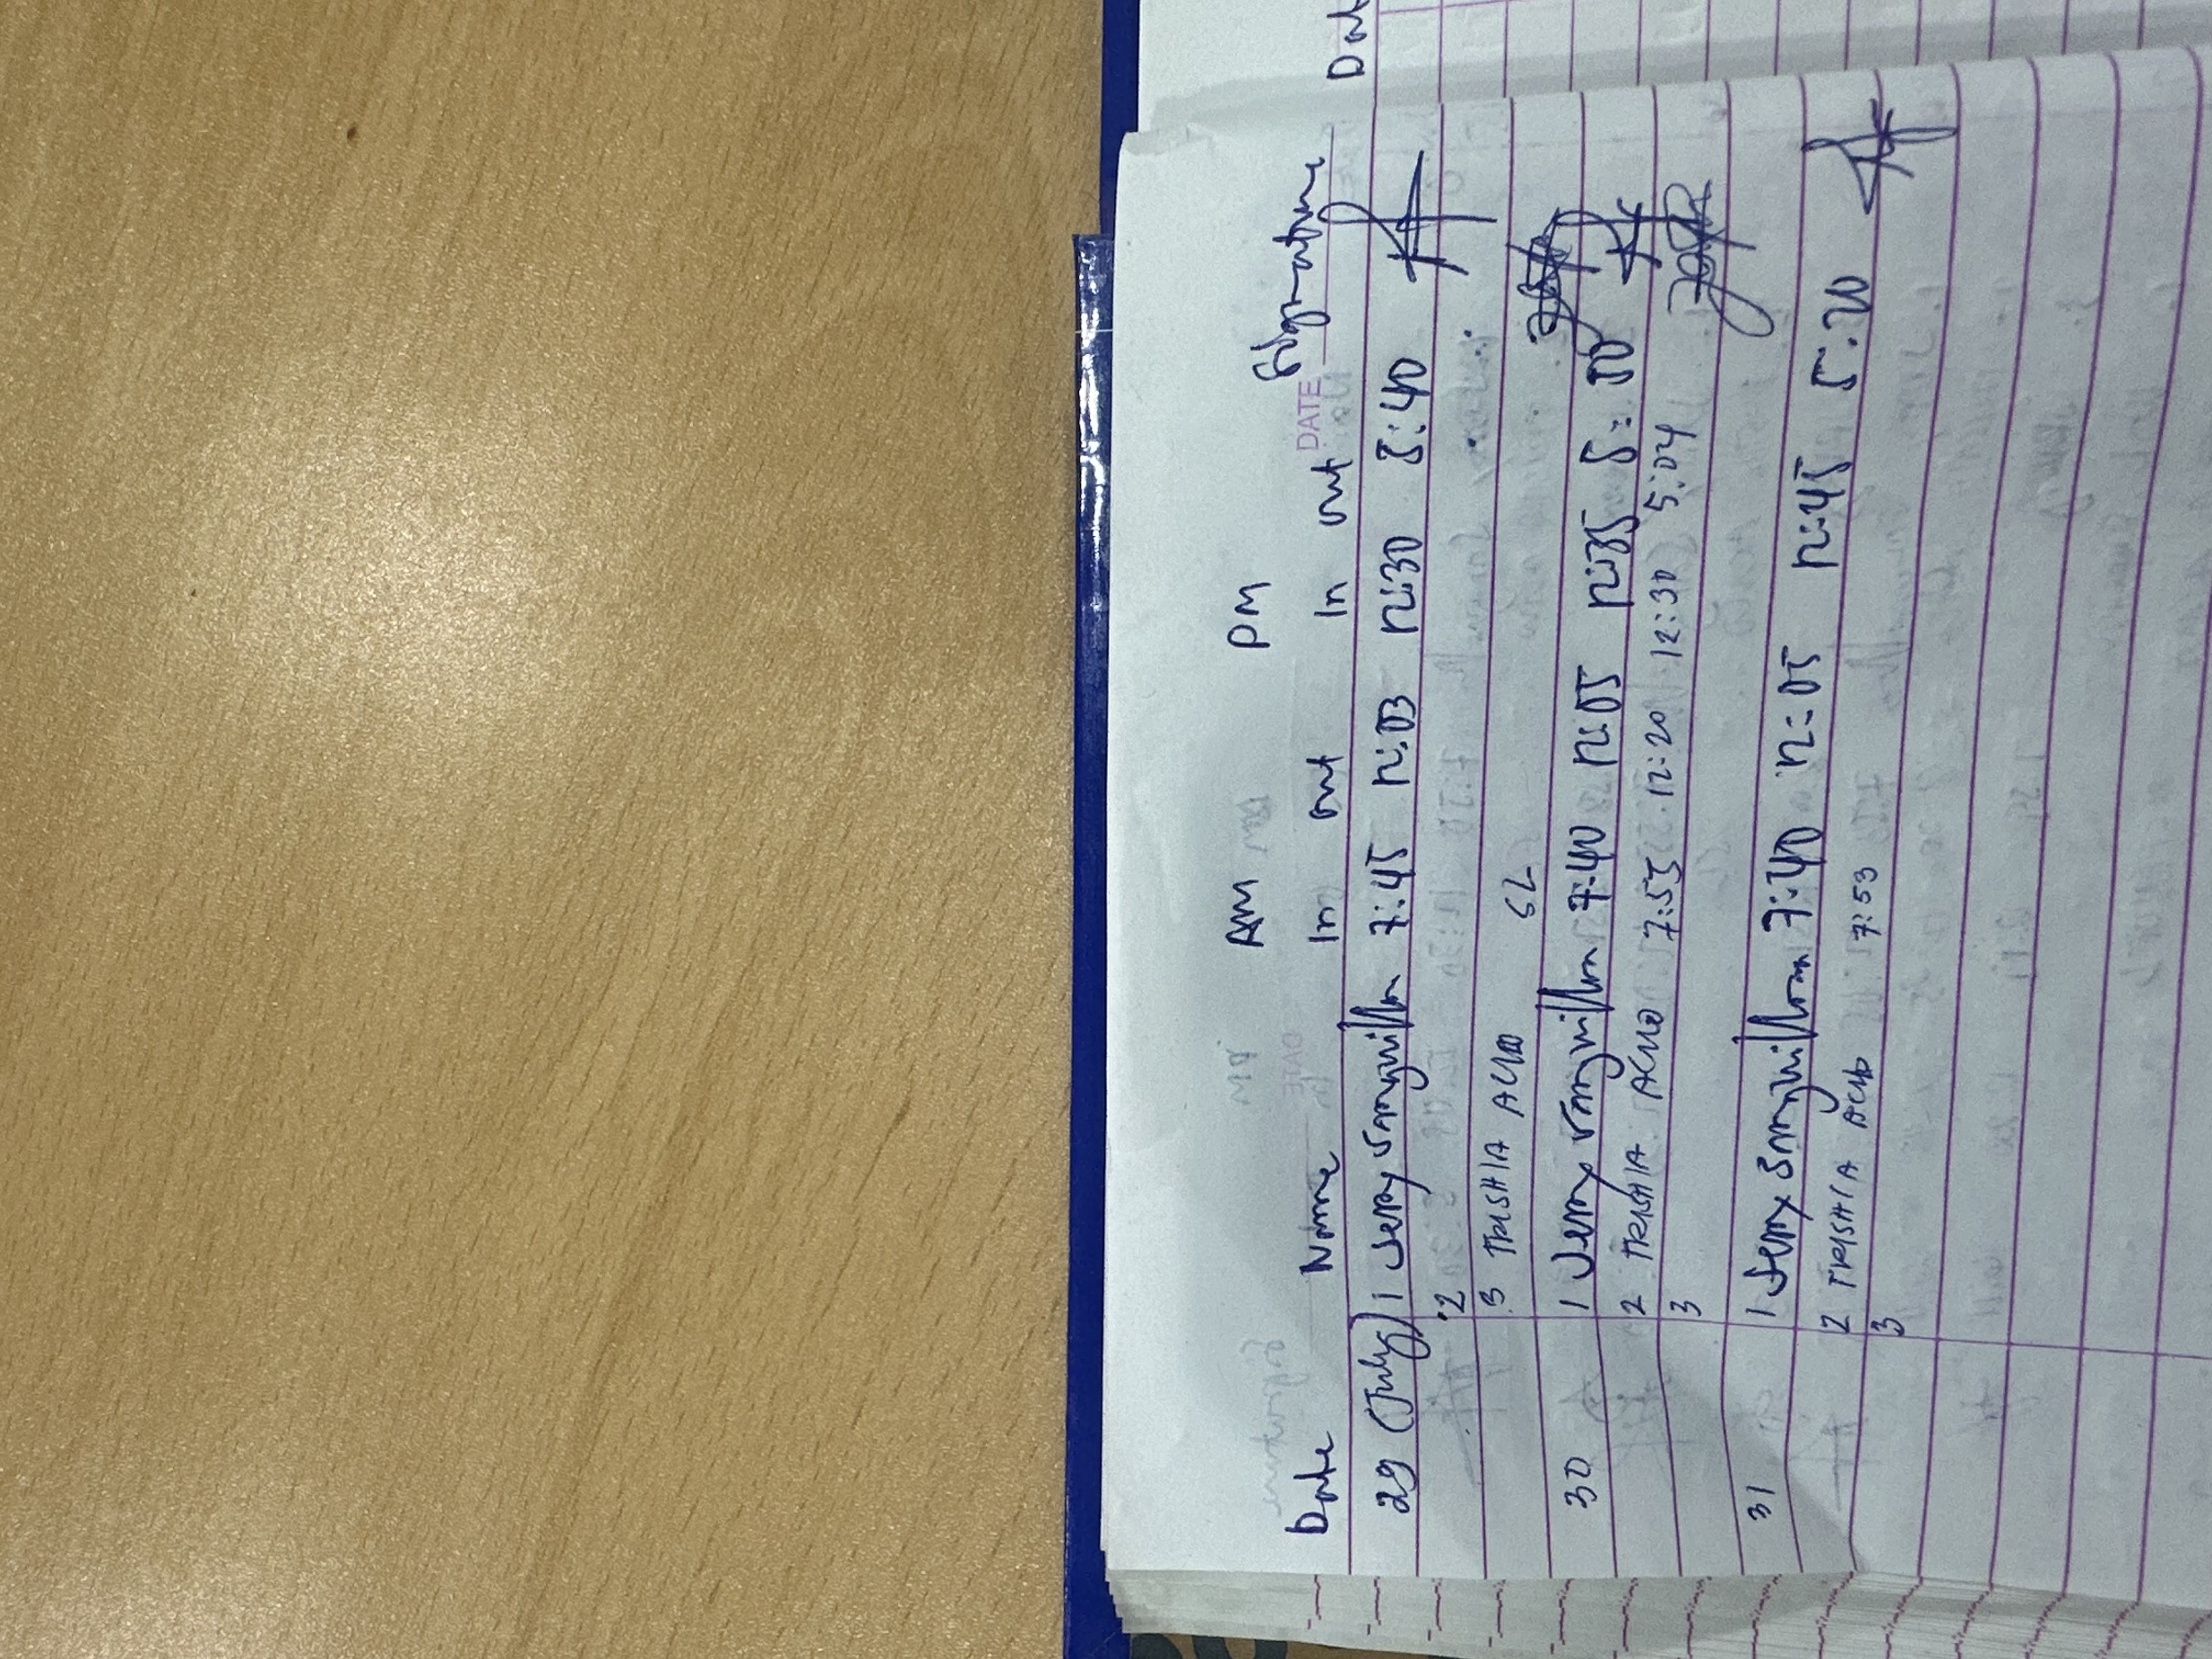 AM PM
Date Name In out In out Signature
DATE
29 (July) 1 Jerry 7:45 12:03 12:30 5:40
2
3 TRISHIA SL
30 1 Jerry 7:40 12:05 12:35 5:50
2 TRISHIA 7:55 12:20 12:30 5:04
3
31 1 Jerry 7:40 12:05 12:45 5:20
2 TRISHIA 7:53
3
Dat